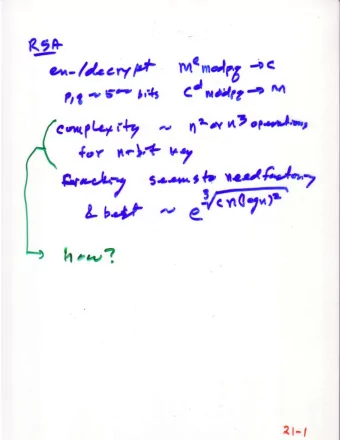 RSA
en-/decrypt M^e mod pq → C
p,q ~ 500 bits C^d mod pq → M
complexity ~ n² or n³ operations
for n-bit key
Cracking seems to need factoring
& best ~ e^∛(cn(log n)²)
→ how?
21-1